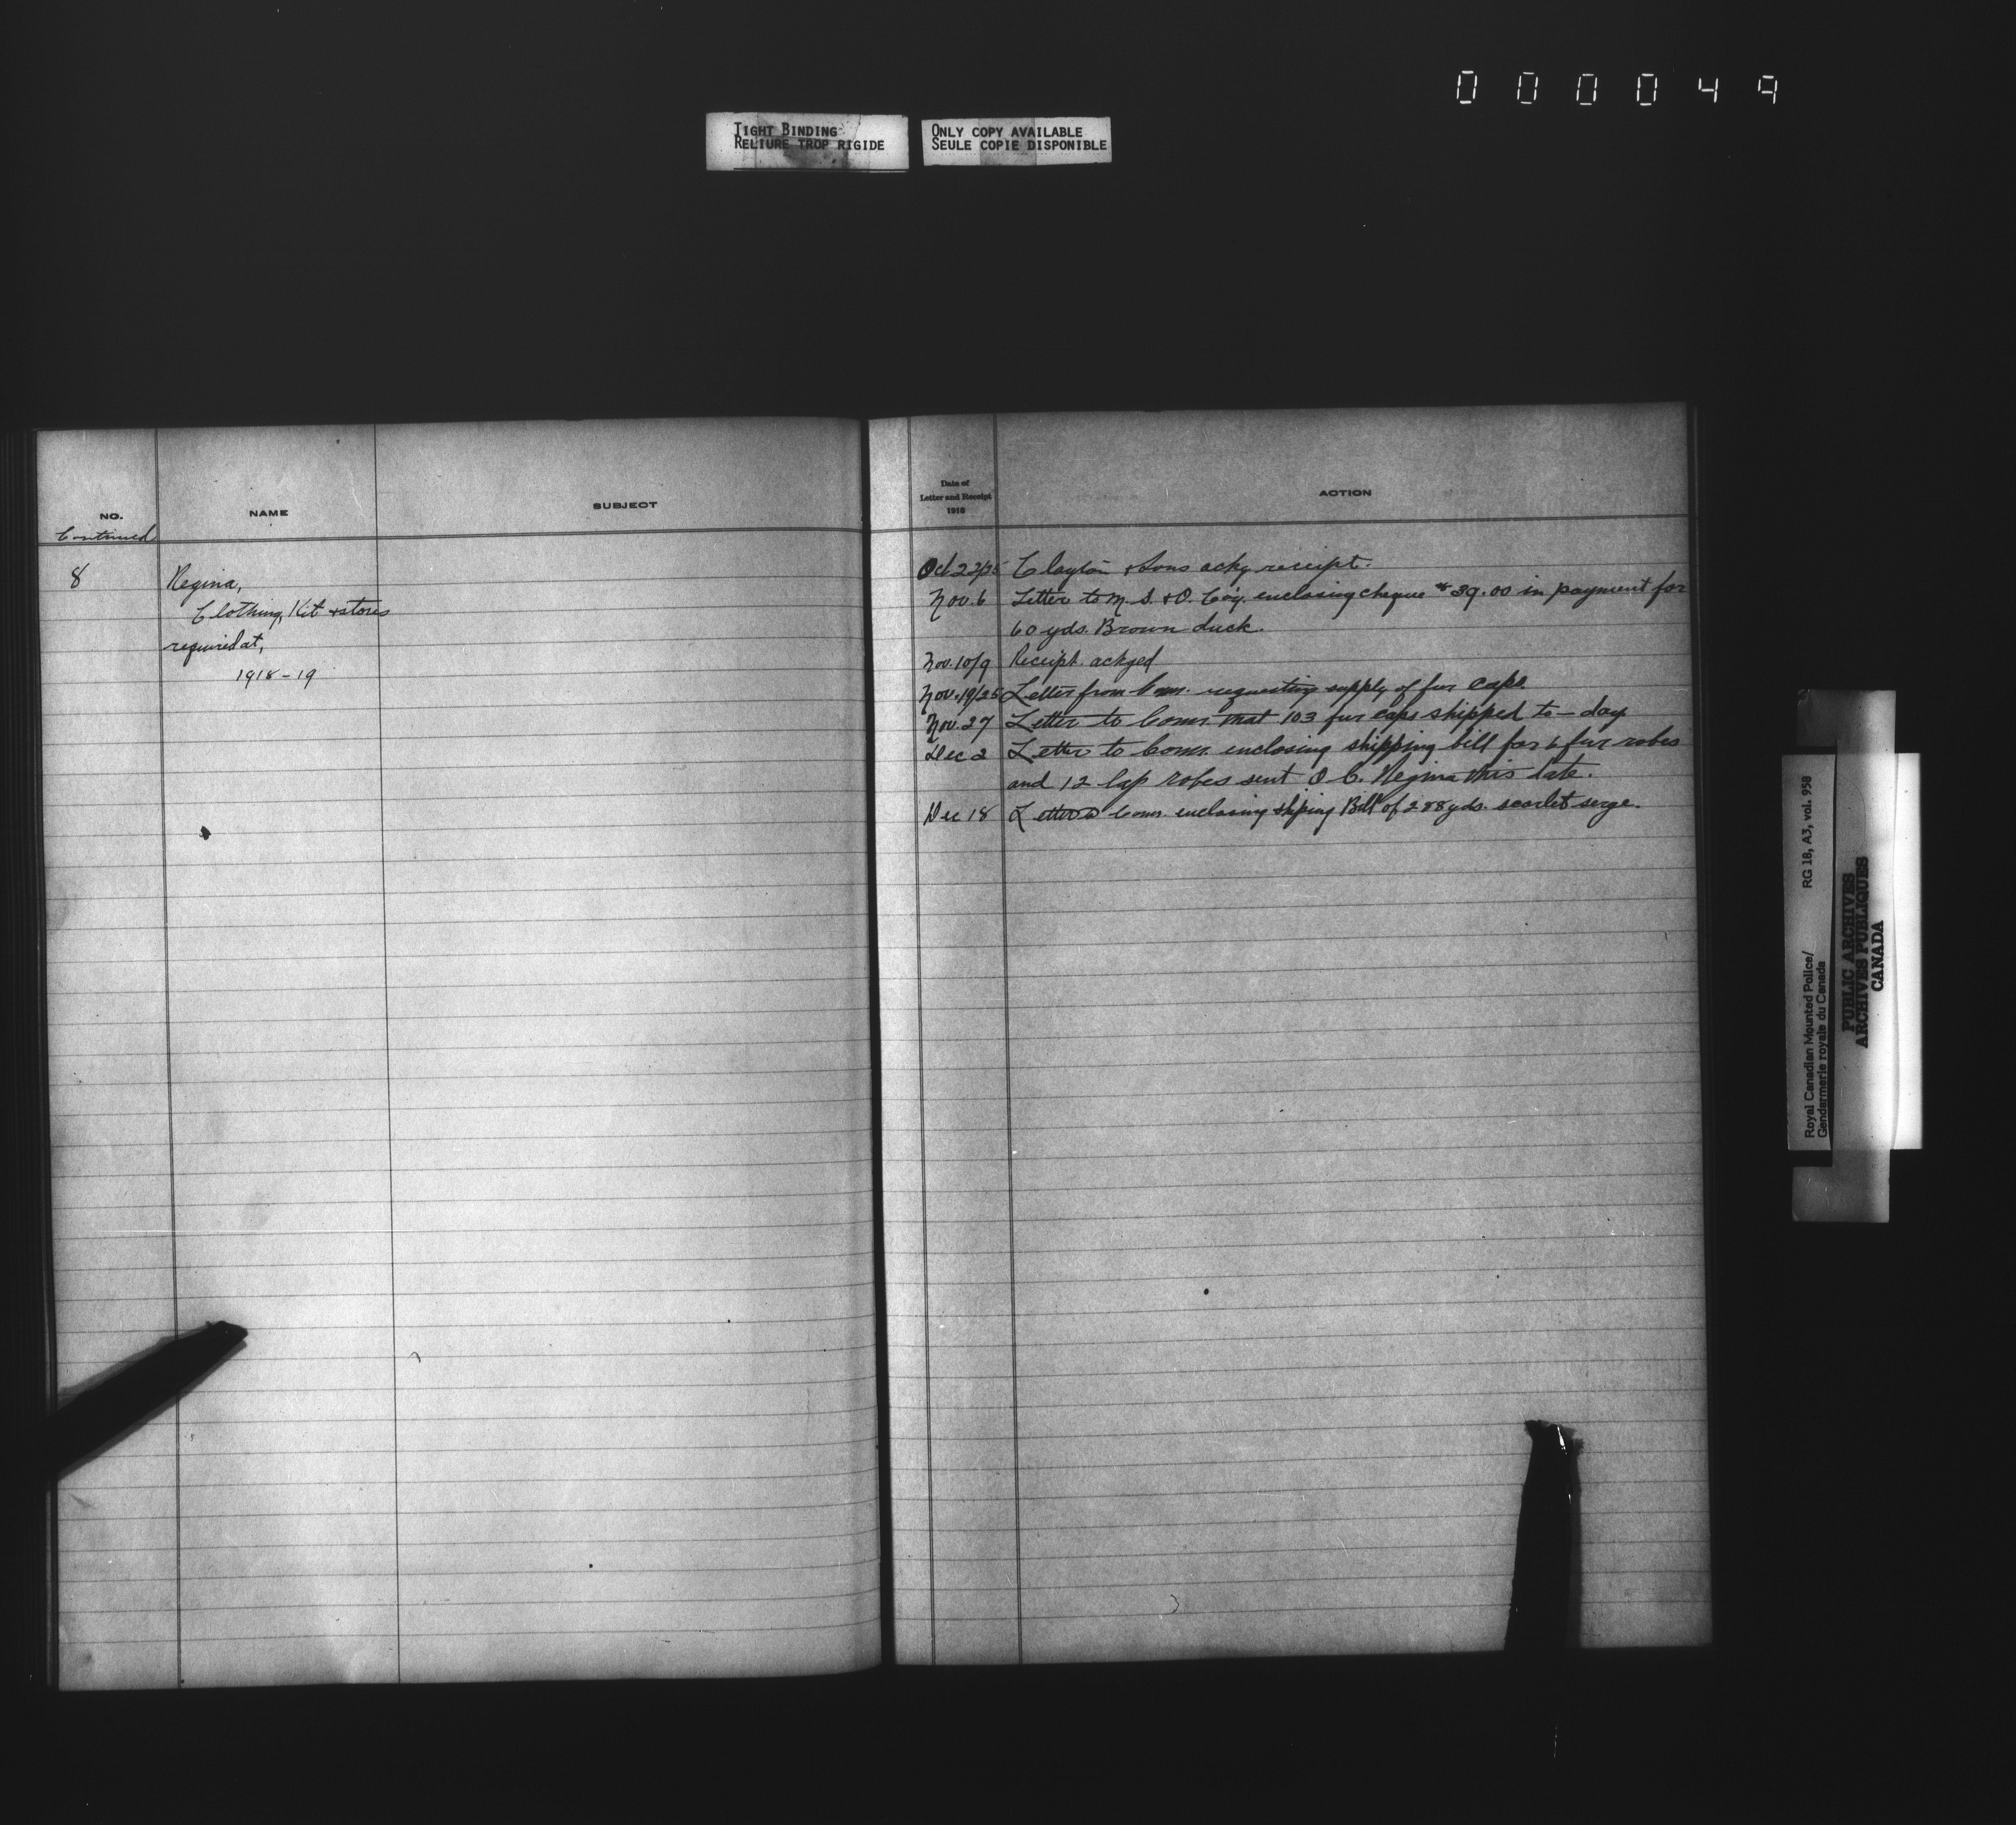 000049
TIGHT BINDING
RELIURE TROP RIGIDE
ONLY COPY AVAILABLE
SEULE COPIE DISPONIBLE
NO.
NAME
SUBJECT
Continued
8
Regina,
Clothing, Kit & stores
required at,
1918-19
Date of
Letter and Receipt
1918
ACTION
Oct 22/25 Clayton & Sons ackg receipt.
Nov. 6 Letter to M. S. & O. Co'y. enclosing cheque $39.00 in payment for
60 yds. Brown duck.
Nov. 10/9 Receipt ackged
Nov. 19/25 Letter from Comr. requesting supply of fur caps.
Nov. 27 Letter to Comr. that 103 fur caps shipped to-day
Dec 2 Letter to Comr. enclosing shipping bill for 6 fur robes
and 12 lap robes sent O C. Regina this date.
Dec 18 Letter to Comr. enclosing shping Bill of 288 yds. scarlet serge.
Royal Canadian Mounted Police/
Gendarmerie royale du Canada
RG 18, A3, vol. 958
PUBLIC ARCHIVES
ARCHIVES PUBLIQUES
CANADA